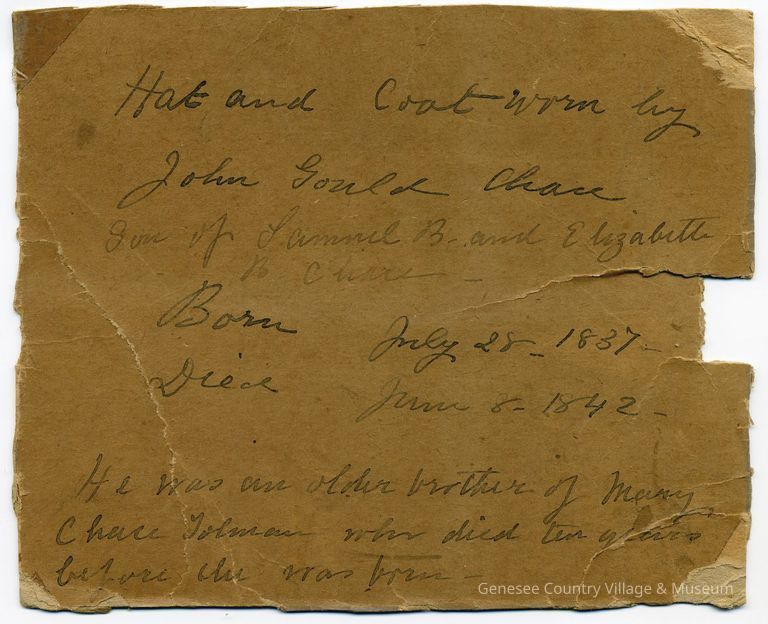 Hat and Coat worn by
John Gould Chase
Son of Samuel B. and Elizabeth
B Chase -
Born July 28 - 1837 -
Died June 8 - 1842 -
He was an older brother of Mary
Chase Tolman who died ten years
before she was born -
Genesee Country Village & Museum